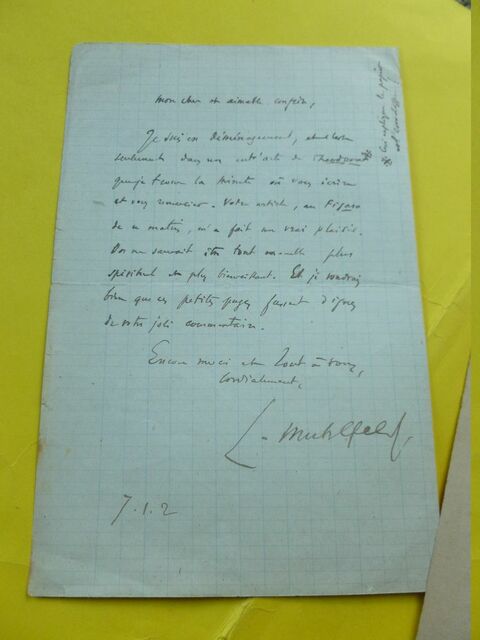 mon cher et aimable confrère,
Je suis en déménagement, et c'est
seulement dans un entr'acte de
que je trouve la minute où vous écrire
et vous remercier. Votre article, au Figaro
de ce matin, m'a fait un vrai plaisir.
On ne saurait être tout ensemble plus
spirituel et plus bienveillant. Et je voudrais
bien que ces petites pages fussent dignes
de votre joli commentaire.
Encore merci et tout à vous,
cordialement,
L. Muhlfeld
7.1.2
le papier